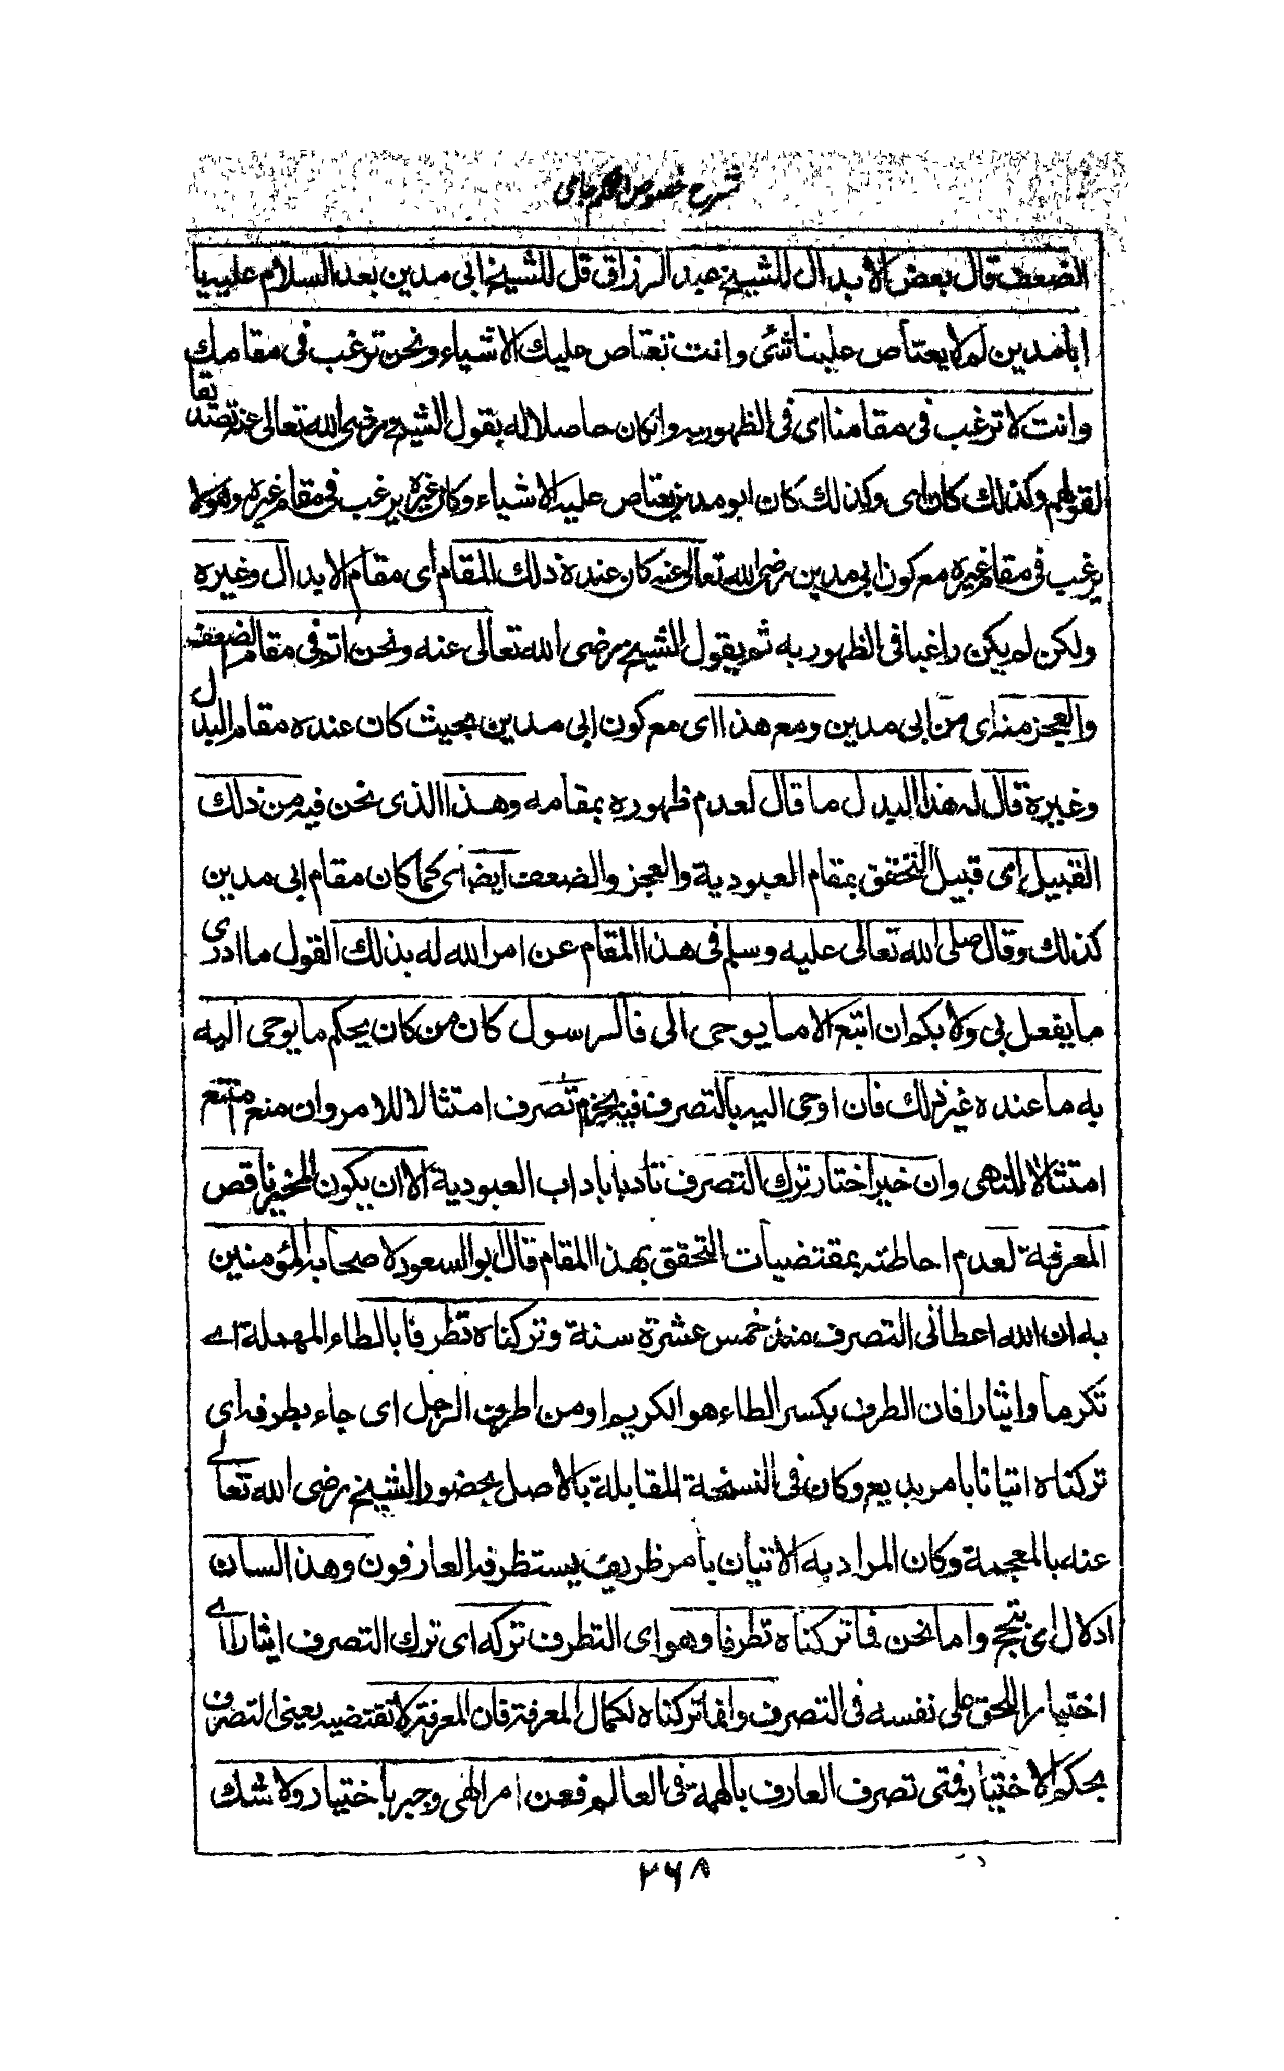 شرح فصوص الحكم جامى
الضعف قال بعض الابدال للشيخ عبد الرزاق قل للشيخ ابى مدين بعد السلام عليه يا
ابا مدين لم لا يعتاص علينا شئ وانت تعتاص عليك الاشياء ونحن نرغب فى مقامك
وانت لا ترغب فى مقامنا اى فى الظهور به وان كان حاصلا له يقول الشيخ رضى الله تعالى عنه تصديقا
لقولهم وكذلك كان اى وكذلك كان ابو مدين يعتاص عليه الاشياء وكان غيره يرغب فى مقام غيره وهو لا
يرغب فى مقام غيره مع كون ابى مدين رضى الله تعالى عنه كان عنده ذلك المقام اى مقام الابدال وغيره
ولكن لم يكن راغبا فى الظهور به ثم يقول الشيخ رضى الله تعالى عنه ونحن اتم فى مقام الضعف
والعجز منه اى من ابى مدين ومع هذا اى مع كون ابى مدين بحيث كان عنده مقام البدل
وغيره قال له هذا البدل ما قال لعدم ظهوره بمقامه وهذا الذى نحن فيه من ذلك
القبيل اى قبيل التحقق بمقام العبودية والعجز والضعف ايضا اى كما كان مقام ابى مدين
كذلك وقال صلى الله تعالى عليه وسلم فى هذا المقام عن امر الله له بذلك القول ما ادرى
ما يفعل بى ولا بكم ان اتبع الا ما يوحى الى فالرسول كان من كان يحكم ما يوحى اليه
به ما عنده غير ذلك فان اوحى اليه بالتصرف فيه بجزم تصرف امتثالا للامر وان منع امتنع
امتثالا للنهى وان خير اختار ترك التصرف تادبا باداب العبودية الا ان يكون المخير ناقص
المعرفة لعدم احاطته بمقتضيات التحقق بهذا المقام قال ابو السعود لاصحابه المؤمنين
به ان الله اعطانى التصرف منذ خمس عشرة سنة وتركناه تطرفا بالطاء المهملة اے
تكرما وايثارا فان الطرف بكسر الطاء هو الكريم او من اطرف الرجل اى جاء بطرفه اى
تركناه اتيانا بامر بديع وكان فى النسخة المقابلة بالاصل بحضور الشيخ رضى الله تعالے
عنه بالمعجمة وكان المراد به الاتيان بامر ظريف يستظرفه العارفون وهذا لسان
ادلال اى تبجح واما نحن فما تركناه تطرفا وهو اى التطرف تركه اى ترك التصرف ايثارا اے
اختيارا للحق على نفسه فى التصرف وانما تركناه لكمال المعرفة فان المعرفة لا تقتضيه يعنى التصرف
بحكم الاختيار فمتى تصرف العارف بالهمة فى العالم فعن امر الهى وجبر باختيار ولا شك
۲۶۸